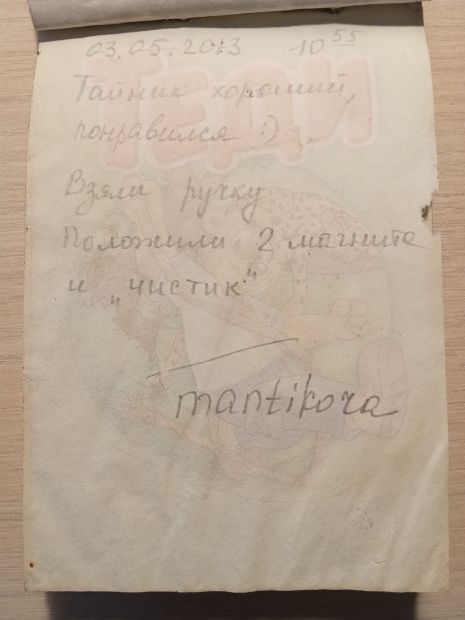 03.05.2013 10 55
Тайник хороший,
понравился :)
Взяли ручку
Положили 2 магнита
и "чистик"
mantikora
ТЕДИ